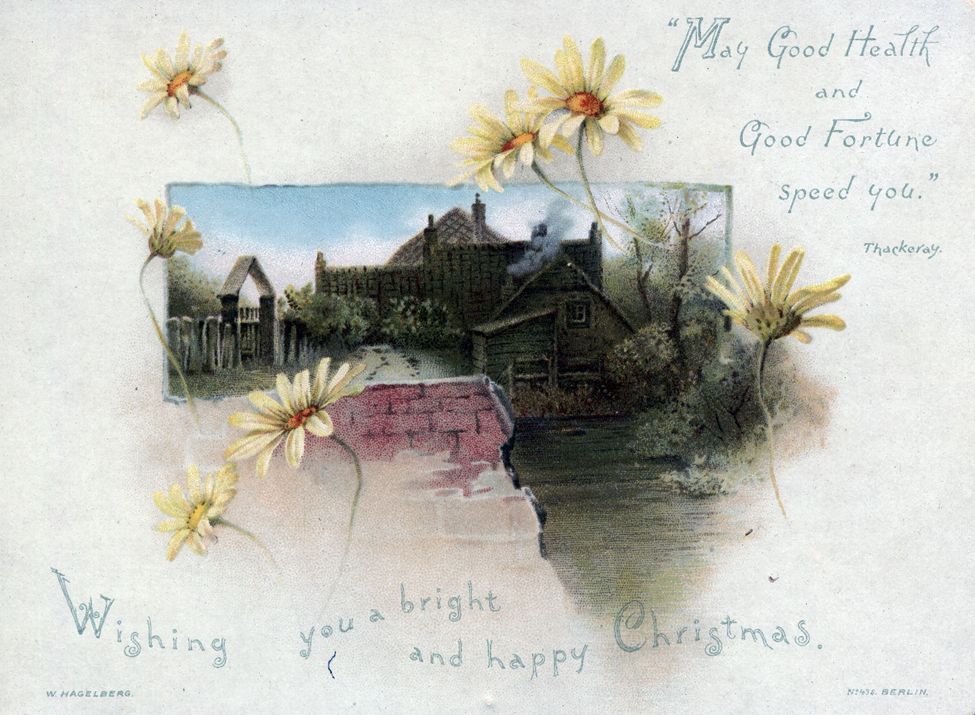 “May Good Health
and
Good Fortune
speed you.”
Thackeray.
Wishing you a bright
and happy Christmas.
W. HAGELBERG.
BERLIN.